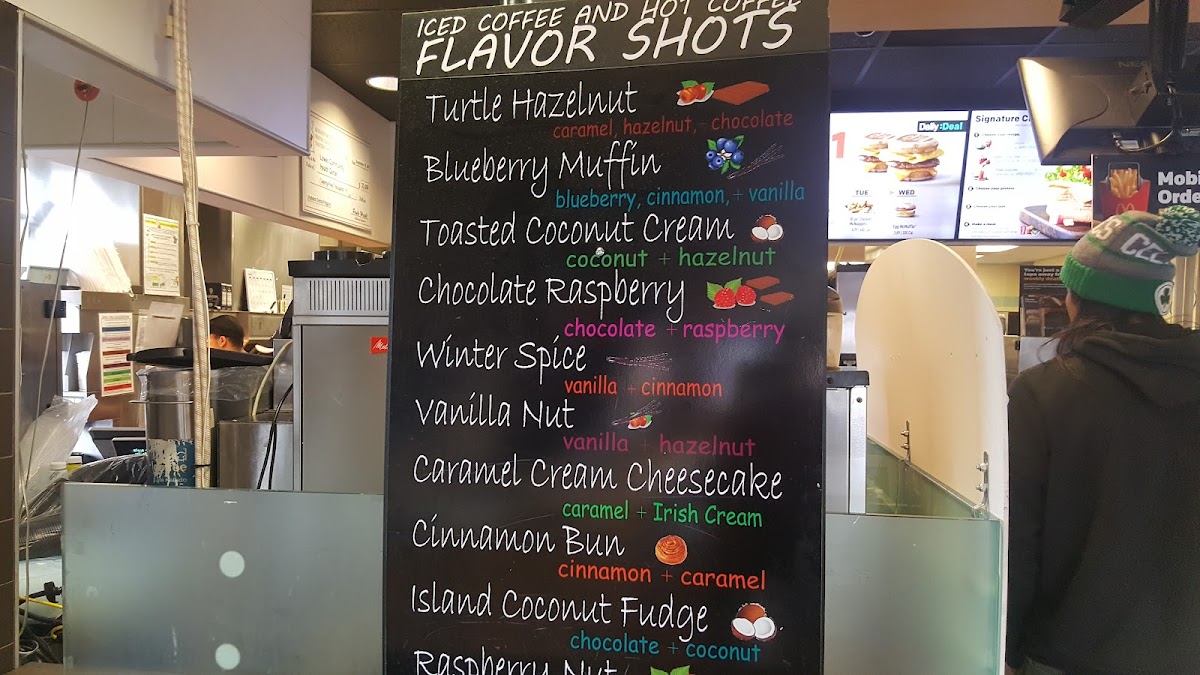 ICED COFFEE AND HOT COFFEE
FLAVOR SHOTS
Turtle Hazelnut
caramel, hazelnut, + chocolate
Blueberry Muffin
blueberry, cinnamon, + vanilla
Toasted Coconut Cream
coconut + hazelnut
Chocolate Raspberry
chocolate + raspberry
Winter Spice
vanilla + cinnamon
Vanilla Nut
vanilla + hazelnut
Caramel Cream Cheesecake
caramel + Irish Cream
Cinnamon Bun
cinnamon + caramel
Island Coconut Fudge
chocolate + coconut
Raspberry Nut
Daily:Deal
1
TUE
WED
Signature
Mobi
Order